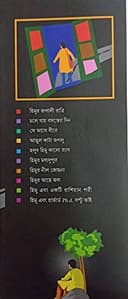 হিমুর রূপালী রাত্রি
চলে যায় বসন্তের দিন
সে আসে ধীরে
আঙুল কাটা জগলু
হলুদ হিমু কালো র‍্যাব
হিমুর মধ্যদুপুর
হিমুর নীল জোছনা
হিমুর আছে জল
হিমু এবং একটি রাশিয়ান পরী
হিমু এবং হার্ভার্ড Ph.D. বল্টু ভাই